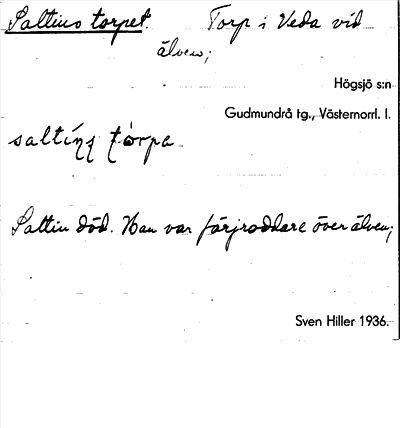 Saltins torpet. Torp i Veda vid
älven;
Högsjö s:n
Gudmundrå tg., Västernorrl. l.
saltíns tòrpe
Saltin död. Han var färjroddare över älven;
Sven Hiller 1936.